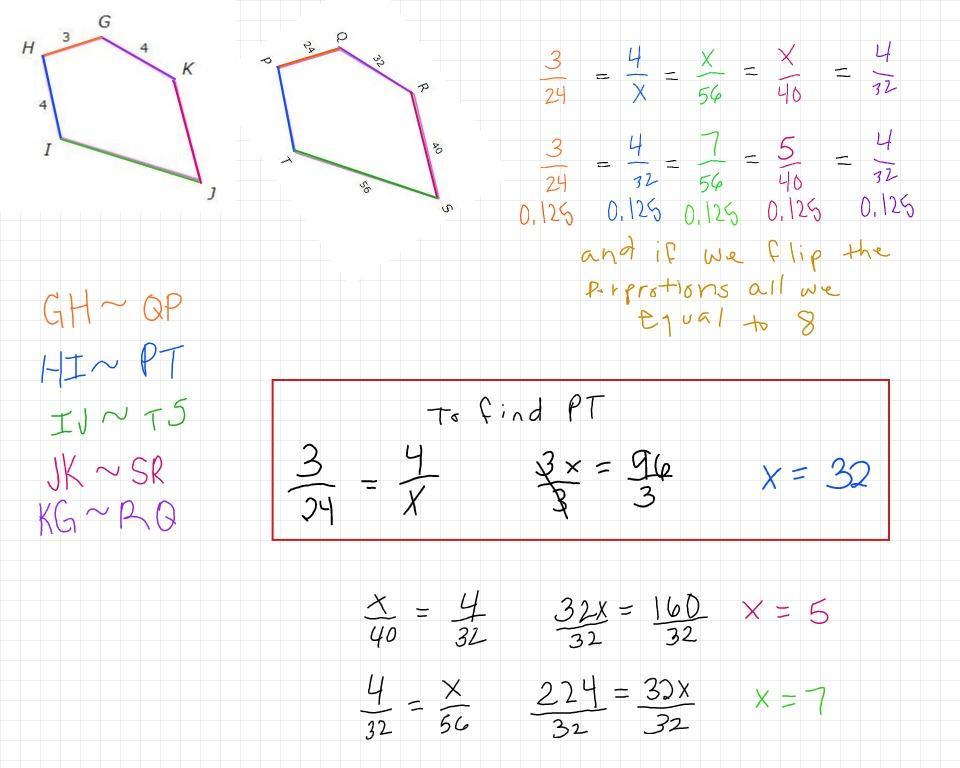 G
H 3 4 K
4
I
J
Q
P 24 32 R
T 40
56 S
3/24 = 4/x = x/56 = x/40 = 4/32
3/24 = 4/32 = 7/56 = 5/40 = 4/32
0.125 0.125 0.125 0.125 0.125
and if we flip the
porprotions all we
Equal to 8
GH ~ QP
HI ~ PT
IJ ~ TS
JK ~ SR
KG ~ RQ
To find PT
3/24 = 4/x 3x/3 = 96/3 x = 32
x/40 = 4/32 32x/32 = 160/32 x = 5
4/32 = x/56 224/32 = 32x/32 x = 7